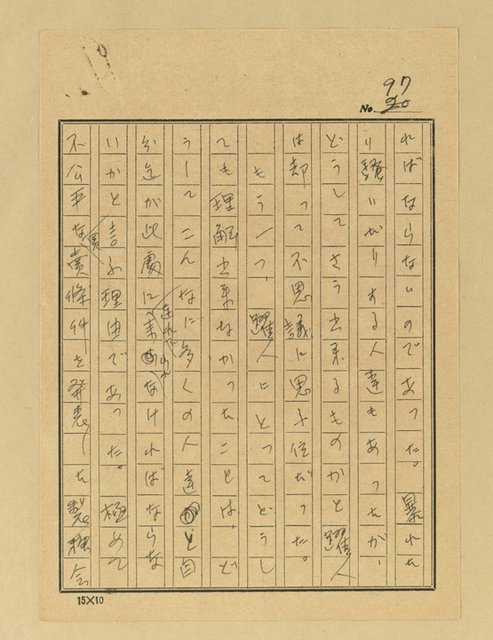 97
No. 20
ればならないのであった。暴れた
り騒いだりする人達もあったが、
どうしてさう出来るものかと躍人
は却って不思議に思ふ位だった。
もう一つ、躍人にとってどうし
ても理解出来なかったことは、ど
うしてこんなに多くの人達と自
分迄が此處に来なければならな
いかと言ふ理由であった。極めて
不公平な買賣條件を発表した製糖会
15×10